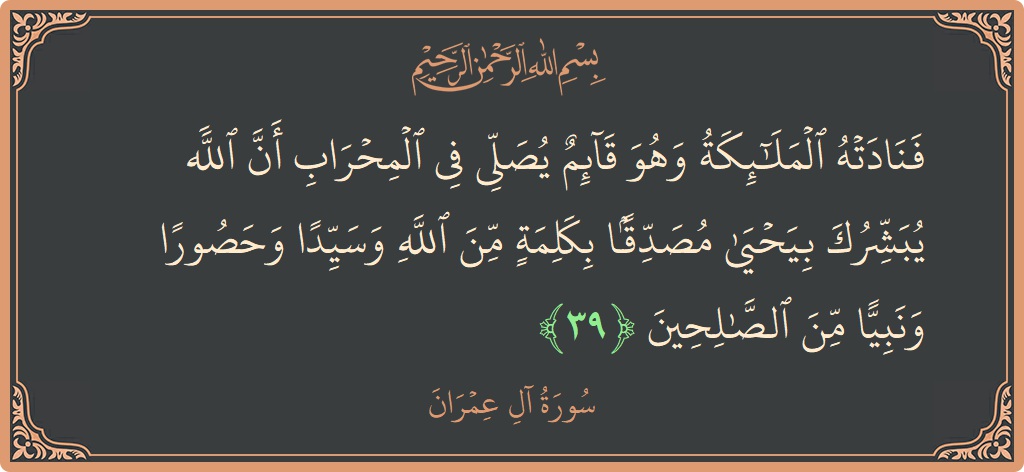 بِسْمِ اللَّهِ الرَّحْمَٰنِ الرَّحِيمِ
فَنَادَتْهُ ٱلْمَلَـٰٓئِكَةُ وَهُوَ قَآئِمٌ يُصَلِّى فِى ٱلْمِحْرَابِ أَنَّ ٱللَّهَ
يُبَشِّرُكَ بِيَحْيَىٰ مُصَدِّقًۢا بِكَلِمَةٍ مِّنَ ٱللَّهِ وَسَيِّدًا وَحَصُورًا
وَنَبِيًّا مِّنَ ٱلصَّـٰلِحِينَ ﴿٣٩﴾
سُورَةُ آلِ عِمْرَانَ